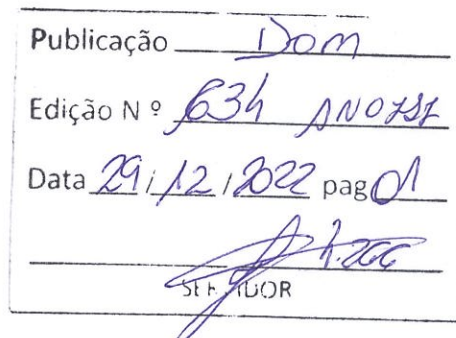 Publicação Dom
Edição Nº 634 ANO
Data 29/12/2022 pag 01
SERVIDOR